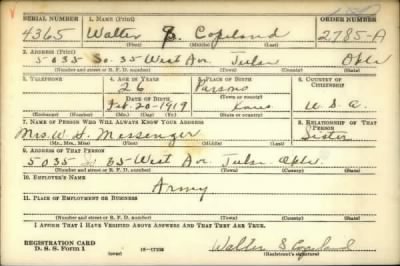 SERIAL NUMBER 1. NAME (Print) ORDER NUMBER
4365 Walter S. Copeland 2785-A
(First) (Middle) (Last)
2. ADDRESS (Print)
5035 So. 35 West Av. Tulsa Okla
(Number and street or R. F. D. number) (Town) (County) (State)
3. TELEPHONE 4. AGE IN YEARS 5. PLACE OF BIRTH 6. COUNTRY OF CITIZENSHIP
26 Parsons
DATE OF BIRTH (Town or county)
Feb-20-1919 Kans U.S.A.
(Exchange) (Number) (Mo.) (Day) (Yr.) (State or country)
7. NAME OF PERSON WHO WILL ALWAYS KNOW YOUR ADDRESS 8. RELATIONSHIP OF THAT PERSON
Mrs. W. S. Messenger Sister
(Mr., Mrs., Miss) (First) (Middle) (Last)
9. ADDRESS OF THAT PERSON
5035 35 West Av. Tulsa Okla.
(Number and street or R. F. D. number) (Town) (County) (State)
10. EMPLOYER'S NAME
Army
11. PLACE OF EMPLOYMENT OR BUSINESS
(Number and street or R. F. D. number) (Town) (County) (State)
I AFFIRM THAT I HAVE VERIFIED ABOVE ANSWERS AND THAT THEY ARE TRUE.
REGISTRATION CARD
D. S. S. Form 1 (over) Walter S Copeland
(Registrant's signature)